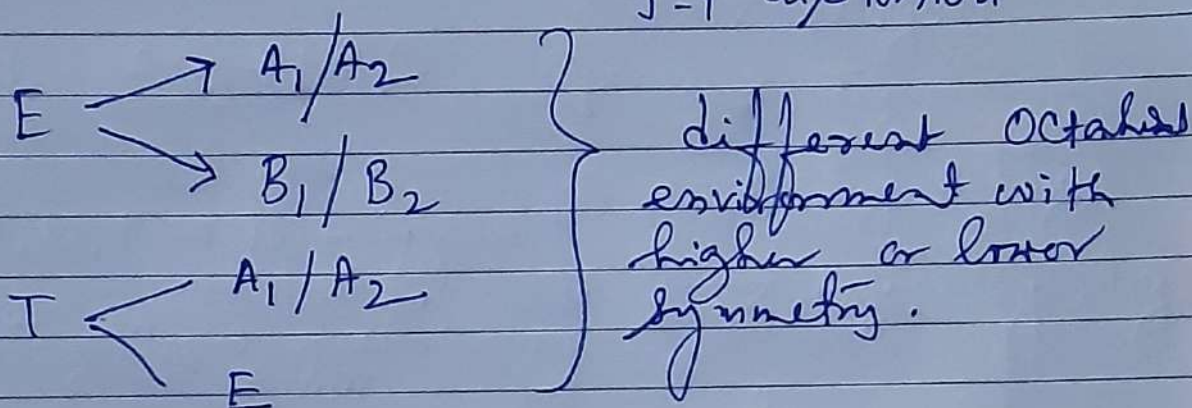 E → A1/A2
→ B1/B2
T A1/A2
E
different
environment with
higher or lower
symmetry.